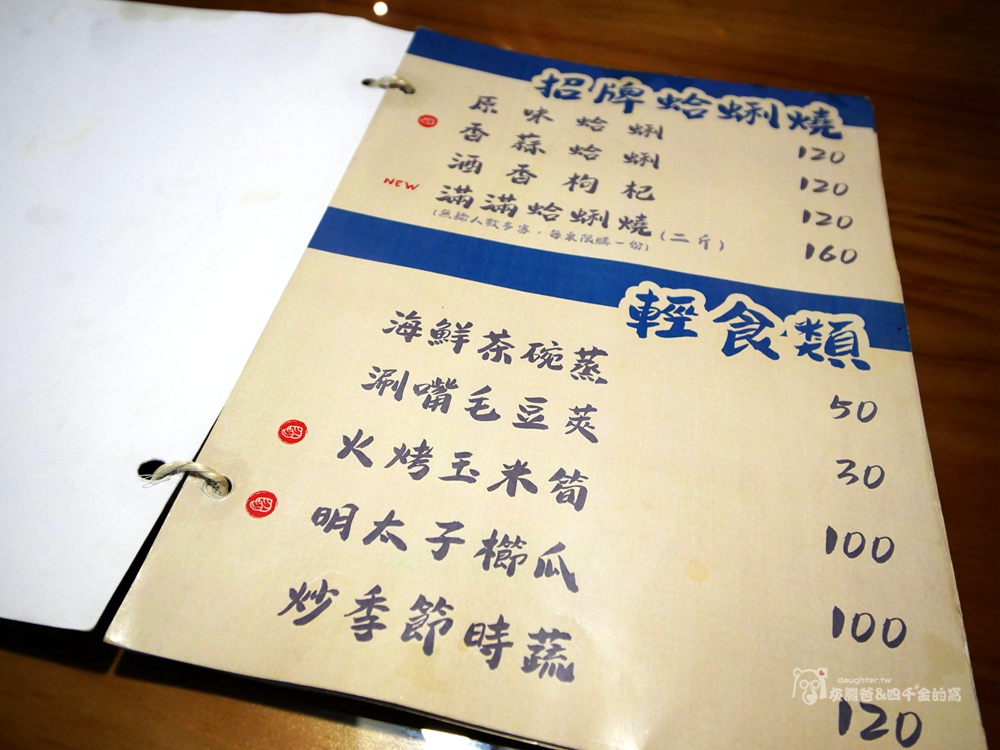 招牌蛤蜊燒
原味蛤蜊 120
香蒜蛤蜊 120
酒香枸杞 120
NEW 滿滿蛤蜊燒(二斤) 160
(無論人數多寡,每桌限購一份)
輕食類
海鮮茶碗蒸 50
涮嘴毛豆莢 30
火烤玉米筍 100
明太子櫛瓜 100
炒季節時蔬 120
daughter.tw
灰熊爸&四千金的窩